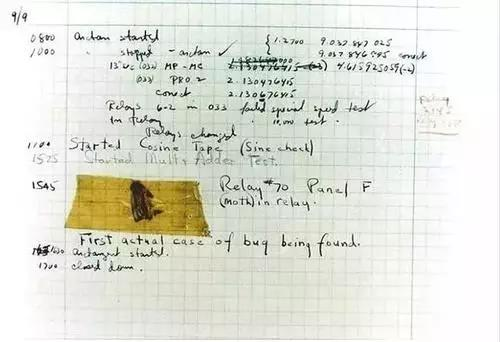 9/9
0800 Antan started
1000 " stopped - antan ✓ { 1.2700 9.037 847 025
9.037 846 995 correct
13"uc (032) MP - MC 2.130476415 (-3) 4.615925059(-2)
(033) PRO 2 2.130476415
correct 2.130676415
Relays 6-2 in 033 failed special speed test
in relay " 10,000 test.
Relays changed
1100 Started Cosine Tape (Sine check)
1525 Started Mult+Adder Test.
1545 Relay #70 Panel F
(moth) in relay.
First actual case of bug being found.
1630 antangent started.
1700 closed down.